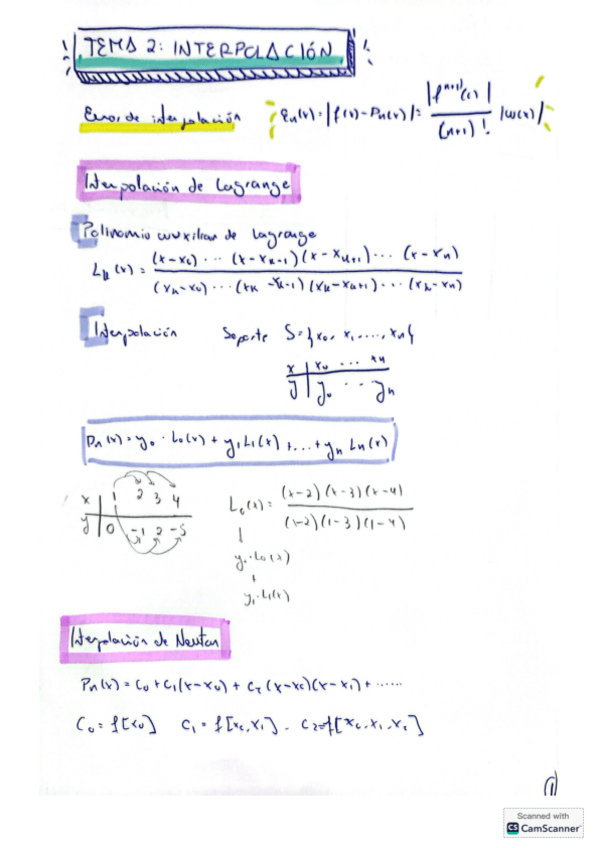 TEMA 2: INTERPOLACIÓN
Error de interpolación εn(x) = |f(x) - Pn(x)| = |f^(n+1)(c)| / (n+1)! |w(x)|
Interpolación de Lagrange
Polinomio auxiliar de Lagrange
Lk(x) = (x-x0)··· (x-xk-1)(x-xk+1)··· (x-xn) / (xk-x0)···(xk-xk-1)(xk-xk+1)···(xk-xn)
Interpolación Soporte S={x0, x1, ..., xn}
x | x0 ··· xn
y | y0 ·· yn
Pn(x) = y0 · L0(x) + y1 L1(x) + ... + yn Ln(x)
x | 1 2 3 4
y | 0 -1 2 -5
L0(x) = (x-2)(x-3)(x-4) / (1-2)(1-3)(1-4)
y0·L0(x)
+
y1·L1(x)
Interpolación de Newton
Pn(x) = c0 + c1(x-x0) + c2(x-x0)(x-x1) + ......
C0 = f[x0] C1 = f[x0,x1] . C2=f[x0,x1,x2]
1
Scanned with
CS CamScanner